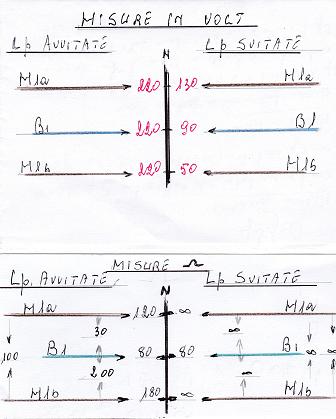 MISURE IN VOLT
Lp AVVITATE N Lp SVITATE
M1a 220 130 M1a
B1 220 90 B1
M1b 220 50 M1b
MISURE Ω
Lp. AVVITATE N Lp SVITATE
M1a 120 ∞ M1a
30 ∞
100 B1 80 80 B1 ∞ ∞
200 ∞
M1b 180 ∞ M1b